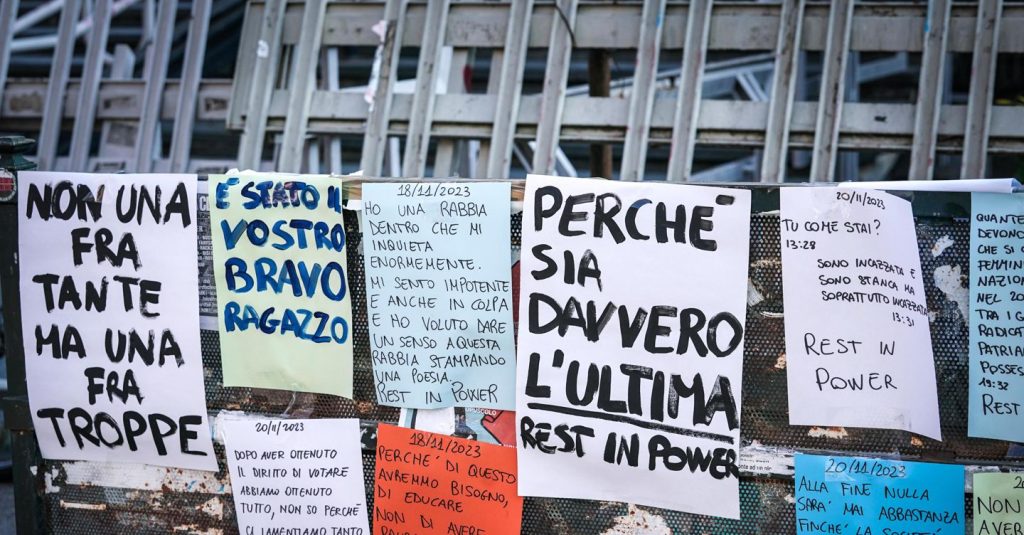 NON UNA
FRA
TANTE
MA UNA
FRA
TROPPE
È STATO IL
VOSTRO
BRAVO
RAGAZZO
18/11/2023
HO UNA RABBIA
DENTRO CHE MI
INQUIETA
ENORMEMENTE.
MI SENTO IMPOTENTE
E ANCHE IN COLPA
E HO VOLUTO DARE
UN SENSO A QUESTA
RABBIA STAMPANDO
UNA POESIA.
REST IN POWER
PERCHÉ
SIA
DAVVERO
L'ULTIMA
REST IN POWER
20/11/2023
TU COME STAI?
13:28
SONO INCAZZATA E
SONO STANCA MA
SOPRATTUTTO INCAZZATA
13:31
REST IN
POWER
QUANTE
DEVONO
CHE SI
FEMMIN
NAZION
NEL 20
TRA I G
RADICAT
PATRIA
POSSES
19:32
REST
20/11/2023
DOPO AVER OTTENUTO
IL DIRITTO DI VOTARE
ABBIAMO OTTENUTO
TUTTO, NON SO PERCHÉ
CI LAMENTIAMO TANTO
18/11/2023
PERCHE' DI QUESTO
AVREMMO BISOGNO,
DI EDUCARE
NON DI AVERE
20/11/2023
ALLA FINE NULLA
SARA' MAI ABBASTANZA
FINCHÉ LA SOCIETÀ
NON
AVER